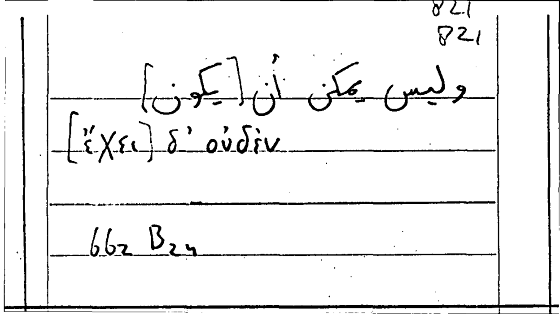 821
821
وليس يمكن أن [يكون]
[ἔχει] δ' οὐδὲν
662 B24